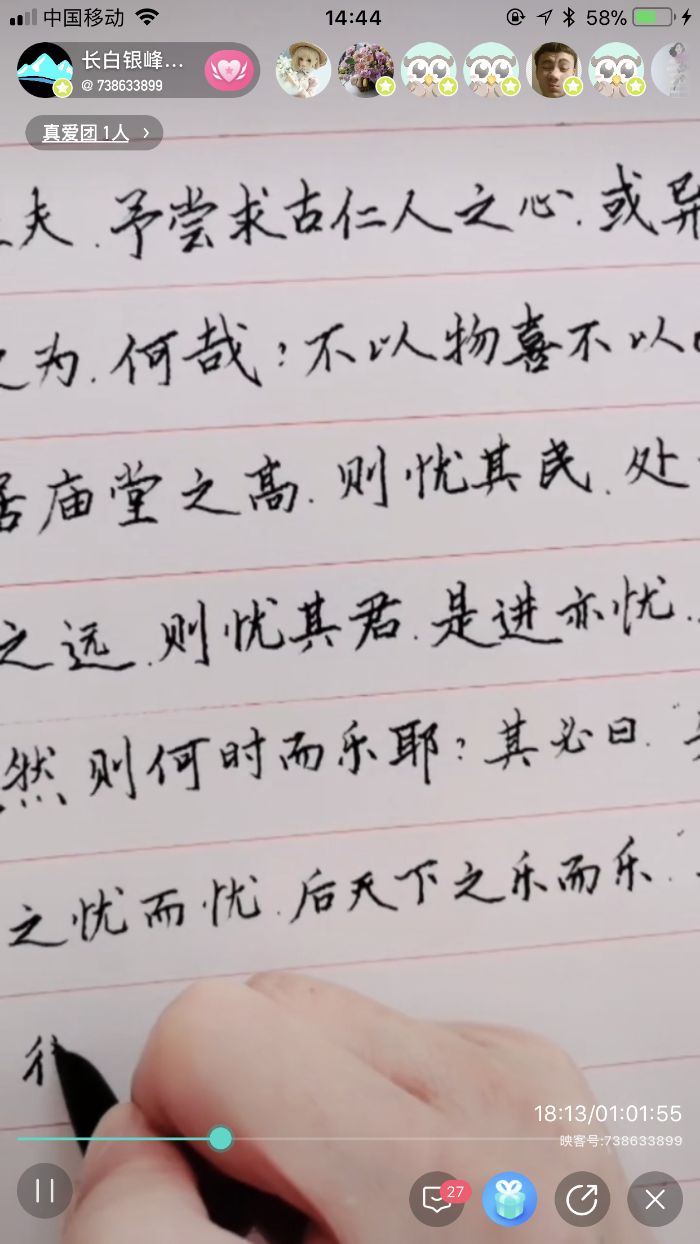 中国移动 14:44 58%
长白银峰...
@ 738633899
真爱团 1人 >
夫.予尝求古仁人之心.或异
之为.何哉?不以物喜不以
居庙堂之高.则忧其民.处
之远.则忧其君.是进亦忧.
然则何时而乐耶?其必曰.
之忧而忧.后天下之乐而乐.
18:13/01:01:55
映客号:738633899
27